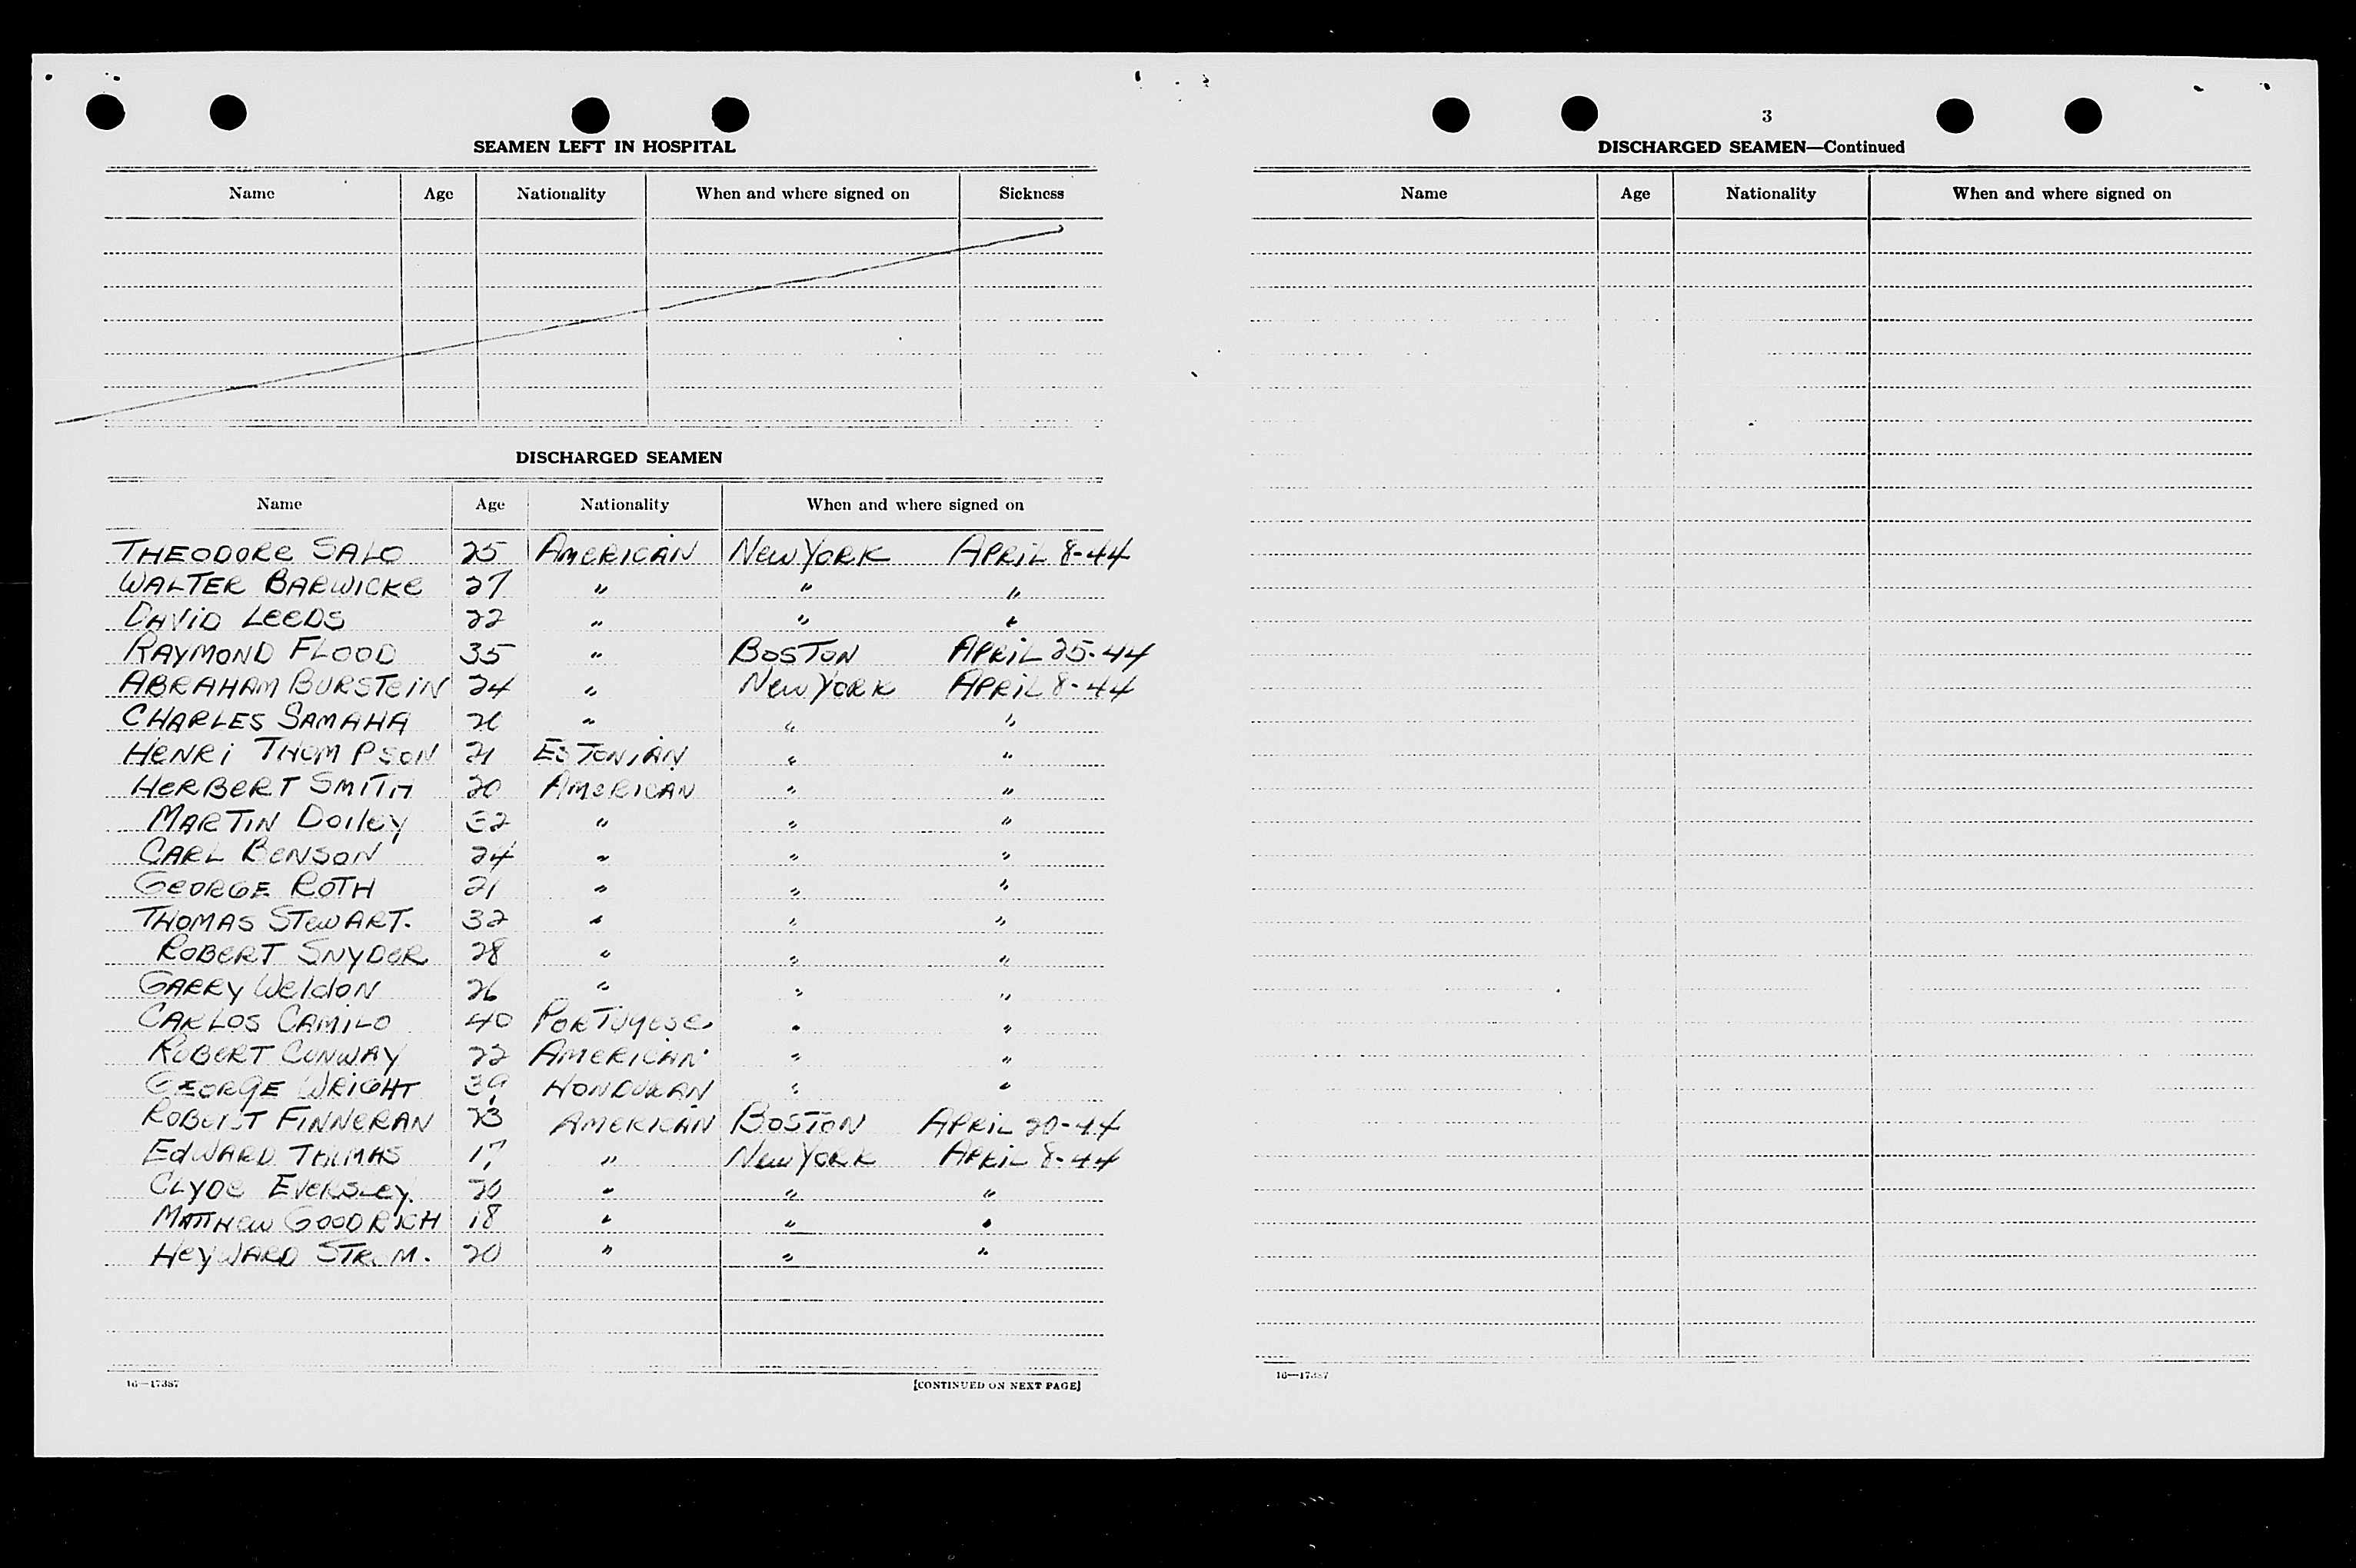 SEAMEN LEFT IN HOSPITAL
Name Age Nationality When and where signed on Sickness
DISCHARGED SEAMEN
Name Age Nationality When and where signed on
THEODORE SALO 25 AMERICAN NEW YORK APRIL 8-44
WALTER BARWICKE 27 " " "
DAVID LEEDS 22 " " "
RAYMOND FLOOD 35 " BOSTON APRIL 25-44
ABRAHAM BURSTEIN 24 " NEW YORK APRIL 8-44
CHARLES SAMAHA " " "
HENRI THOMPSON 21 ESTONIAN " "
HERBERT SMITH 20 AMERICAN " "
MARTIN DOILEY 32 " " "
CARL BENSON 24 " " "
GEORGE ROTH 21 " " "
THOMAS STEWART. 32 " " "
ROBERT SNYDER 28 " " "
GARRY WELDON 26 " " "
CARLOS CAMILO 40 PORTUGESE " "
ROBERT CONWAY 22 AMERICAN " "
GEORGE WRIGHT 39 HONDURAN " "
ROBERT FINNERAN 23 AMERICAN BOSTON APRIL 20-44
EDWARD THOMAS 17 " NEW YORK APRIL 8-44
CLYDE EVERSLEY. 20 " " "
MATTHEW GOODRICH 18 " " "
HEYWARD STROM. 20 " " "
16—17387
[CONTINUED ON NEXT PAGE]
3
DISCHARGED SEAMEN—Continued
Name Age Nationality When and where signed on
16—17387